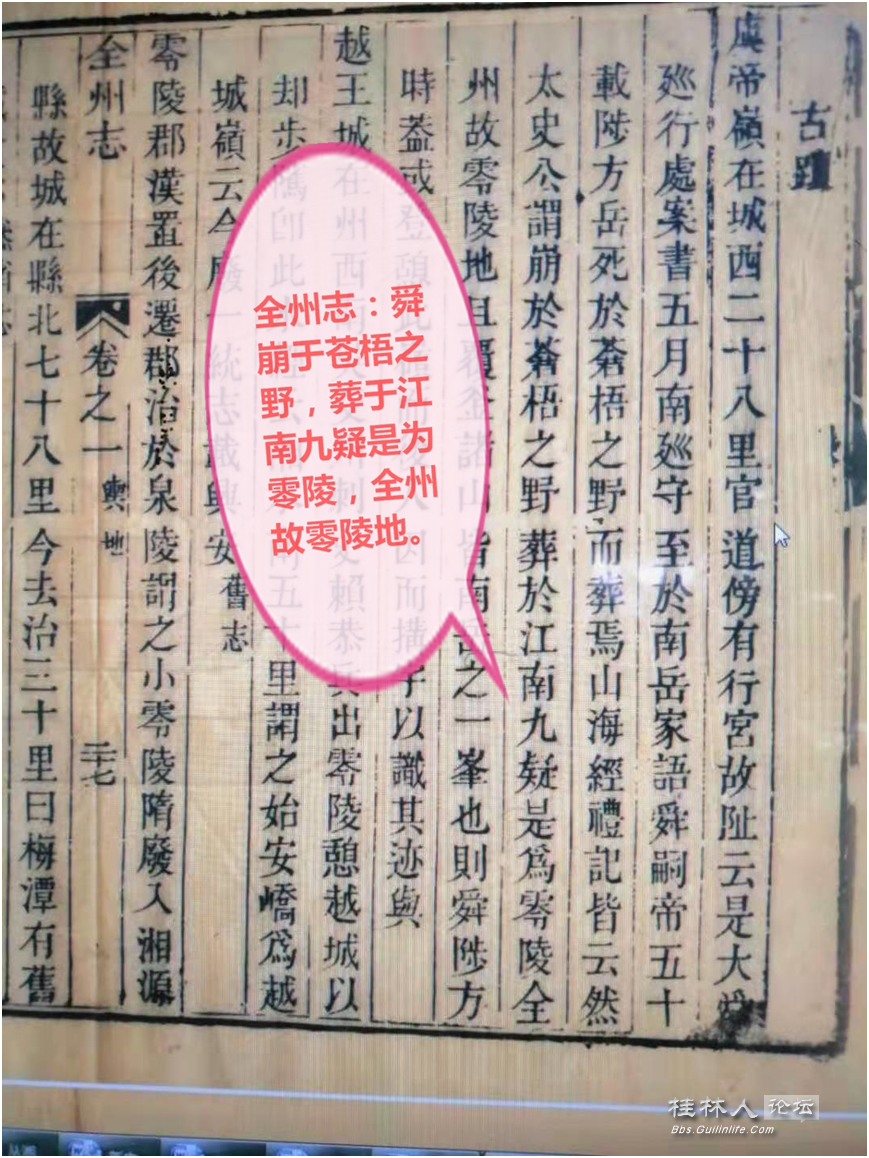 古蹟
虞帝嶺在城西二十八里官道傍有行宮故阯云是大舜
廵行處案書五月南廵守至於南岳家語舜嗣帝五十
載陟方岳死於蒼梧之野而葬焉山海經禮記皆云然
太史公謂崩於蒼梧之野葬於江南九疑是爲零陵全
州故零陵地且覆釜諸山皆南岳之一峯也則舜陟方
時蓋或登憩此嶺而後人因而搆宇以識其迹與
越王城在州西南刺史賴恭兵出零陵憩越城以
却步隲卽此南五十里謂之始安嶠爲越
城嶺云今廢一統志載興安舊志
零陵郡漢置後遷郡治於泉陵謂之小零陵隋廢入湘源
全州志 卷之一 輿地 二十七
縣故城在縣北七十八里今去治三十里曰梅潭有舊
全州志：舜
崩于苍梧之
野，葬于江
南九疑是为
零陵，全州
故零陵地。
桂林人论坛
Bbs.Guilinlife.Com